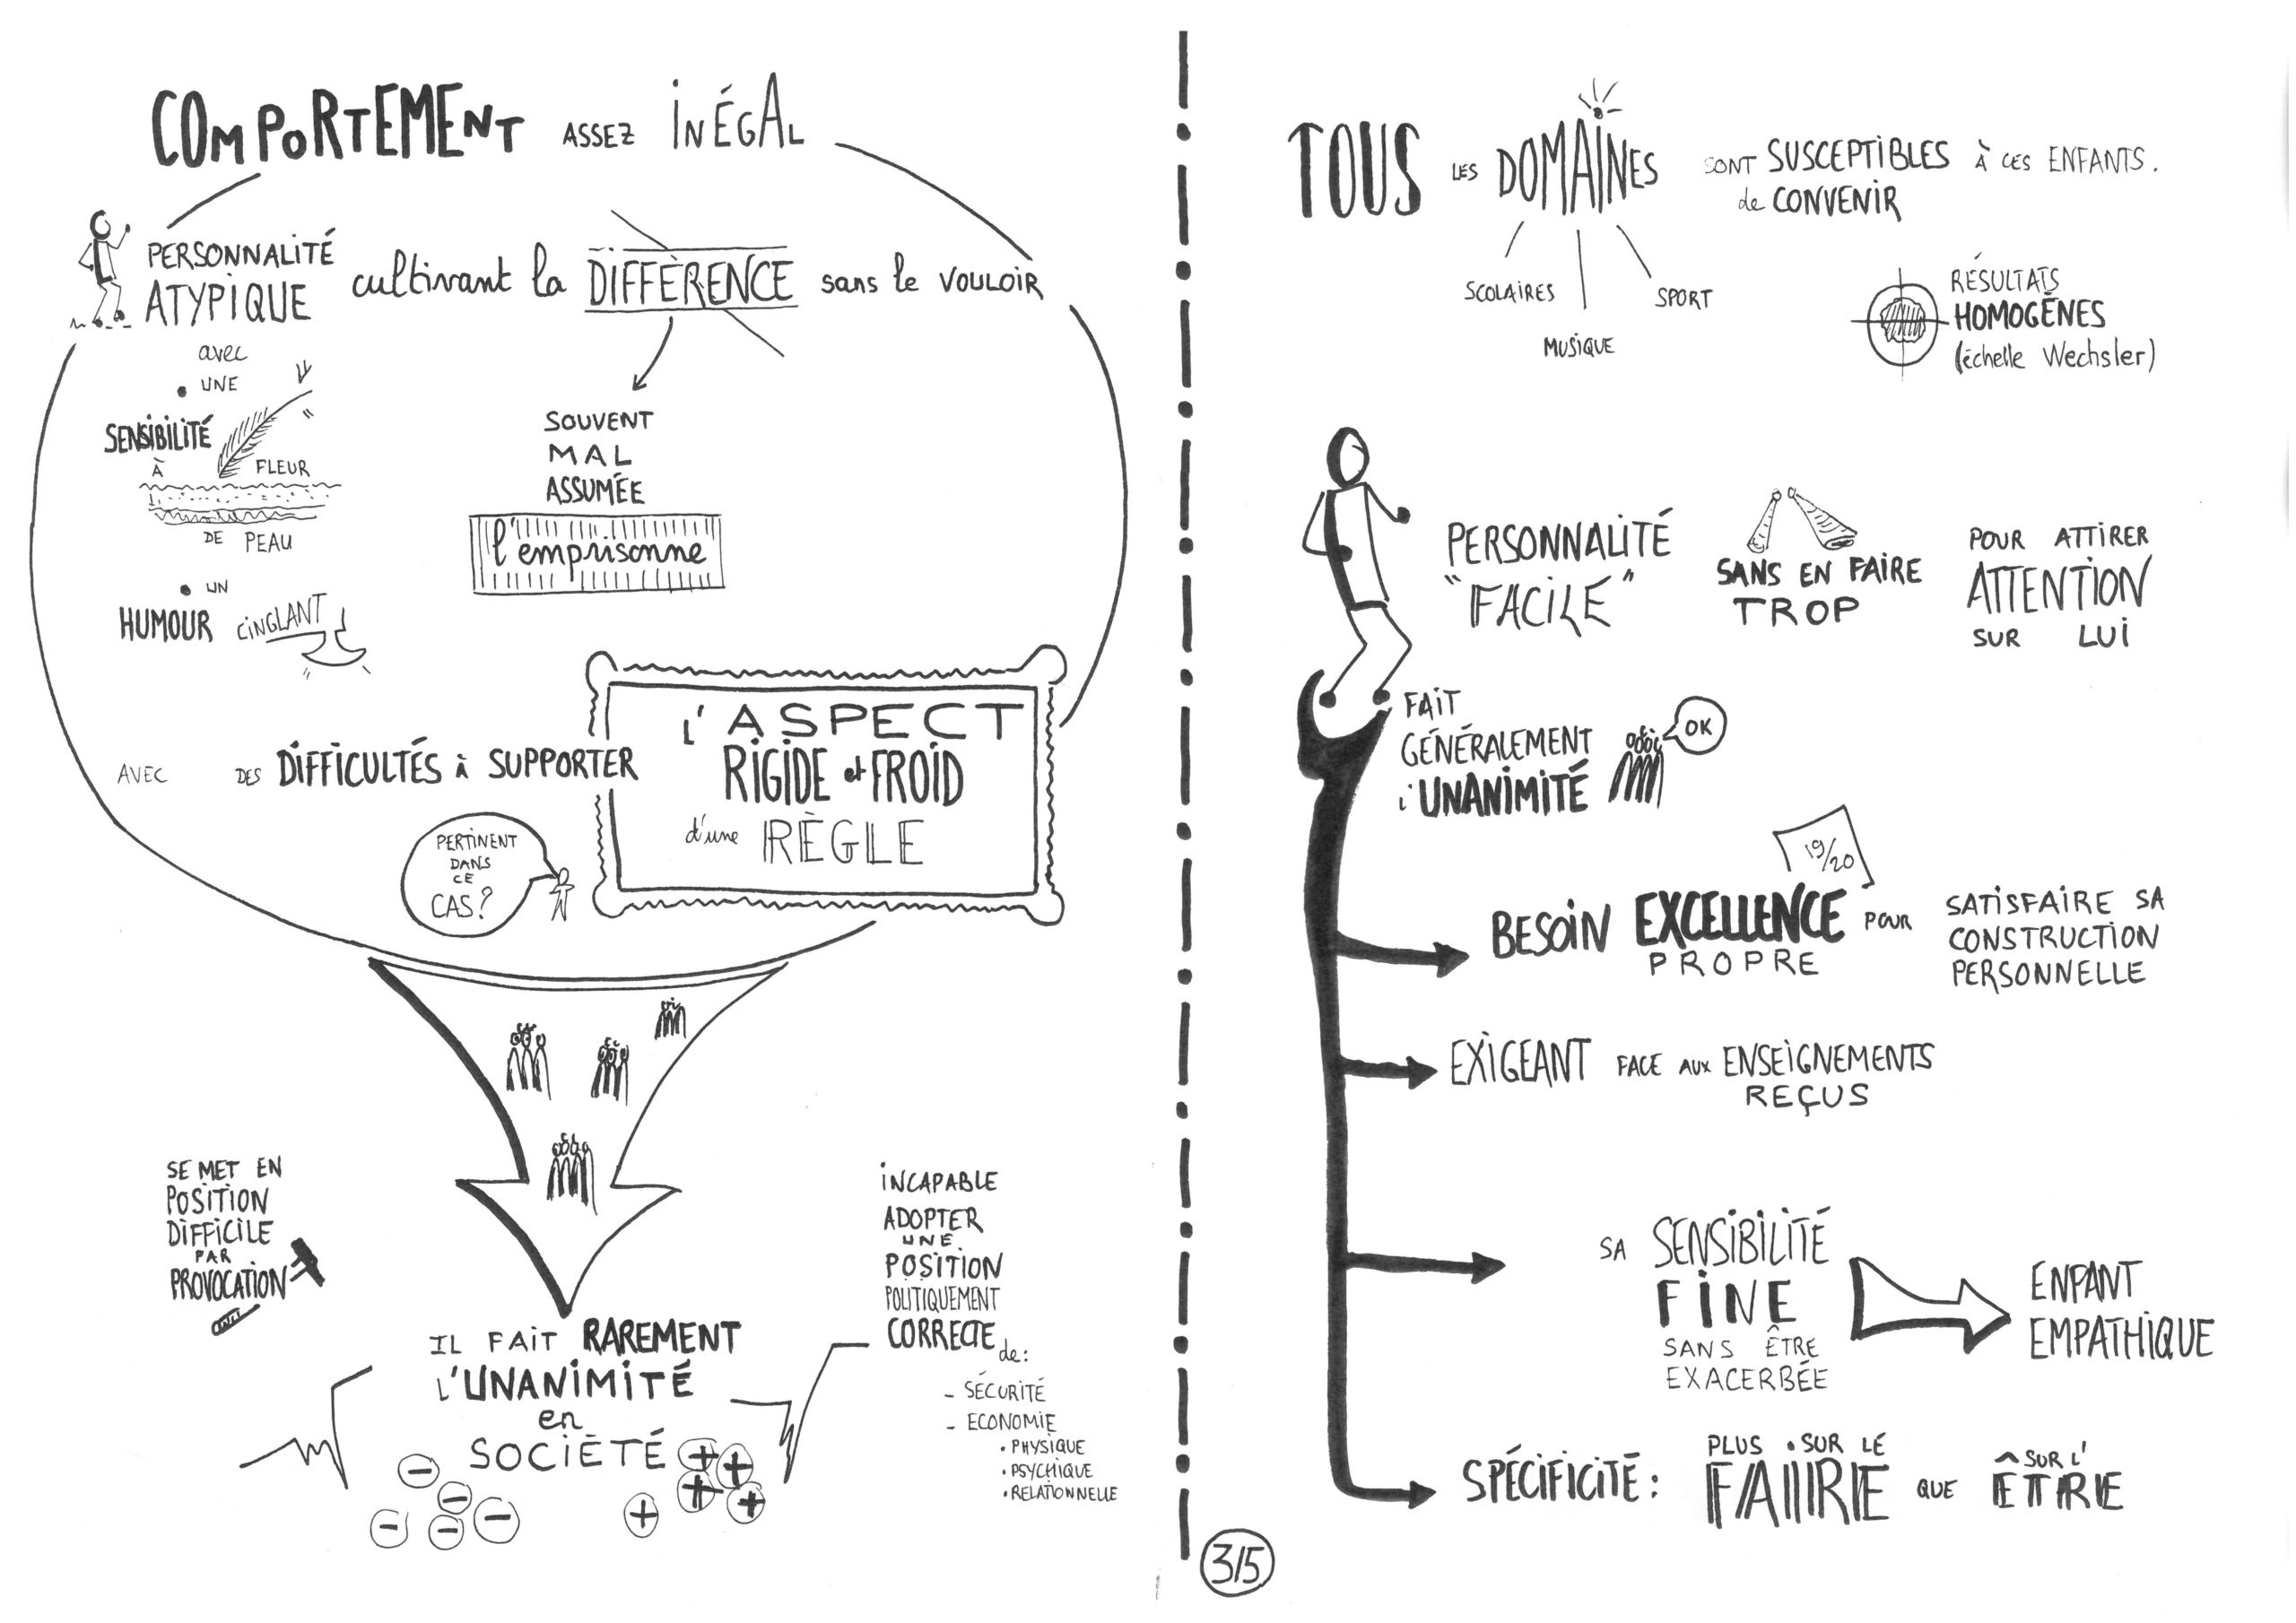 COMPORTEMENT ASSEZ INÉGAL
PERSONNALITÉ
ATYPIQUE
cultivant la DIFFÉRENCE sans le VOULOIR
avec
• UNE
SENSIBILITÉ
À FLEUR
DE PEAU
• UN
HUMOUR CINGLANT
SOUVENT
MAL
ASSUMÉE
l'emprisonne
AVEC DES DIFFICULTÉS À SUPPORTER
L'ASPECT
RIGIDE et FROID
d'une RÈGLE
PERTINENT
DANS
CE
CAS?
SE MET EN
POSITION
DIFFICILE
PAR
PROVOCATION
IL FAIT RAREMENT
L'UNANIMITÉ
en
SOCIÉTÉ
INCAPABLE
ADOPTER
UNE
POSITION
POLITIQUEMENT
CORRECTE de:
- SÉCURITÉ
- ECONOMIE
• PHYSIQUE
• PSYCHIQUE
• RELATIONNELLE
TOUS LES DOMAINES SONT SUSCEPTIBLES À CES ENFANTS.
de CONVENIR
SCOLAIRES
MUSIQUE
SPORT
RÉSULTATS
HOMOGÈNES
(échelle Wechsler)
PERSONNALITÉ
"FACILE"
SANS EN FAIRE
TROP
POUR ATTIRER
ATTENTION
SUR LUI
FAIT
GÉNÉRALEMENT
L'UNANIMITÉ
OK
19/20
BESOIN EXCELLENCE POUR
PROPRE
SATISFAIRE SA
CONSTRUCTION
PERSONNELLE
EXIGEANT FACE AUX ENSEIGNEMENTS
REÇUS
SA SENSIBILITÉ
FINE
SANS ÊTRE
EXACERBÉE
ENFANT
EMPATHIQUE
SPÉCIFICITÉ: PLUS SUR LE
FAIRE QUE SUR L'
ÊTRE
3/5